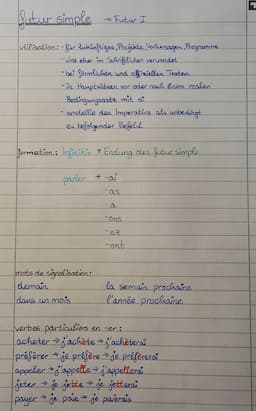 futur simple → Futur I
utilisation: - für zukünftiges, Projekte, Vorhersagen, Programme
- wird eher im Schriftlichen verwendet
- bei förmlichen und offiziellen Texten
- in Hauptsätzen vor oder nach einem realen
Bedingungssatz mit si
- anstelle des Imperativs als unbedingt
zu befolgender Befehl
formation: Infinitiv + Endung des futur simple
parler + -ai
-as
-a
-ons
-ez
-ont
mots de signalisation:
demain la semain prochaine
dans un mois l'année prochaine
verbes particuliers en -er:
acheter → j'achète → j'achèterai
préférer → je préfère → je préférerai
appeler → j'appelle → j'appellerai
jeter → je jette → je jetterai
payer → je paie → je paierais